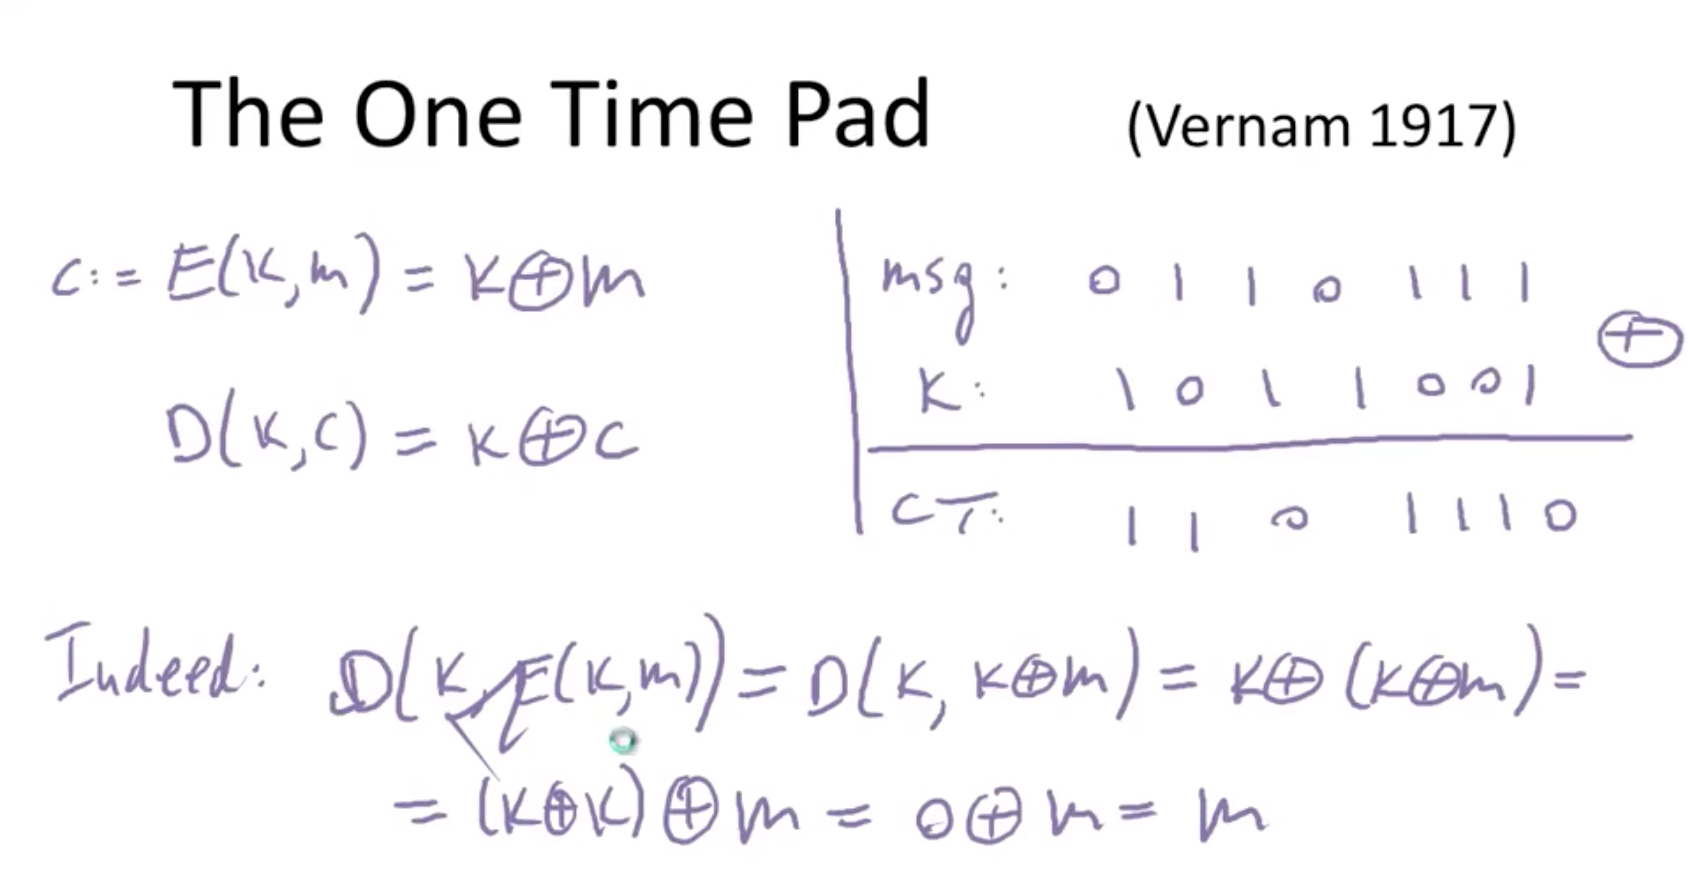 The One Time Pad (Vernam 1917)
c := E(k,m) = k⊕m
D(k,c) = k⊕c
msg: 0 1 1 0 1 1 1
⊕
k: 1 0 1 1 0 0 1
CT: 1 1 0 1 1 1 0
Indeed: D(k, E(k,m)) = D(k, k⊕m) = k⊕(k⊕m) =
= (k⊕k)⊕m = 0⊕m = m